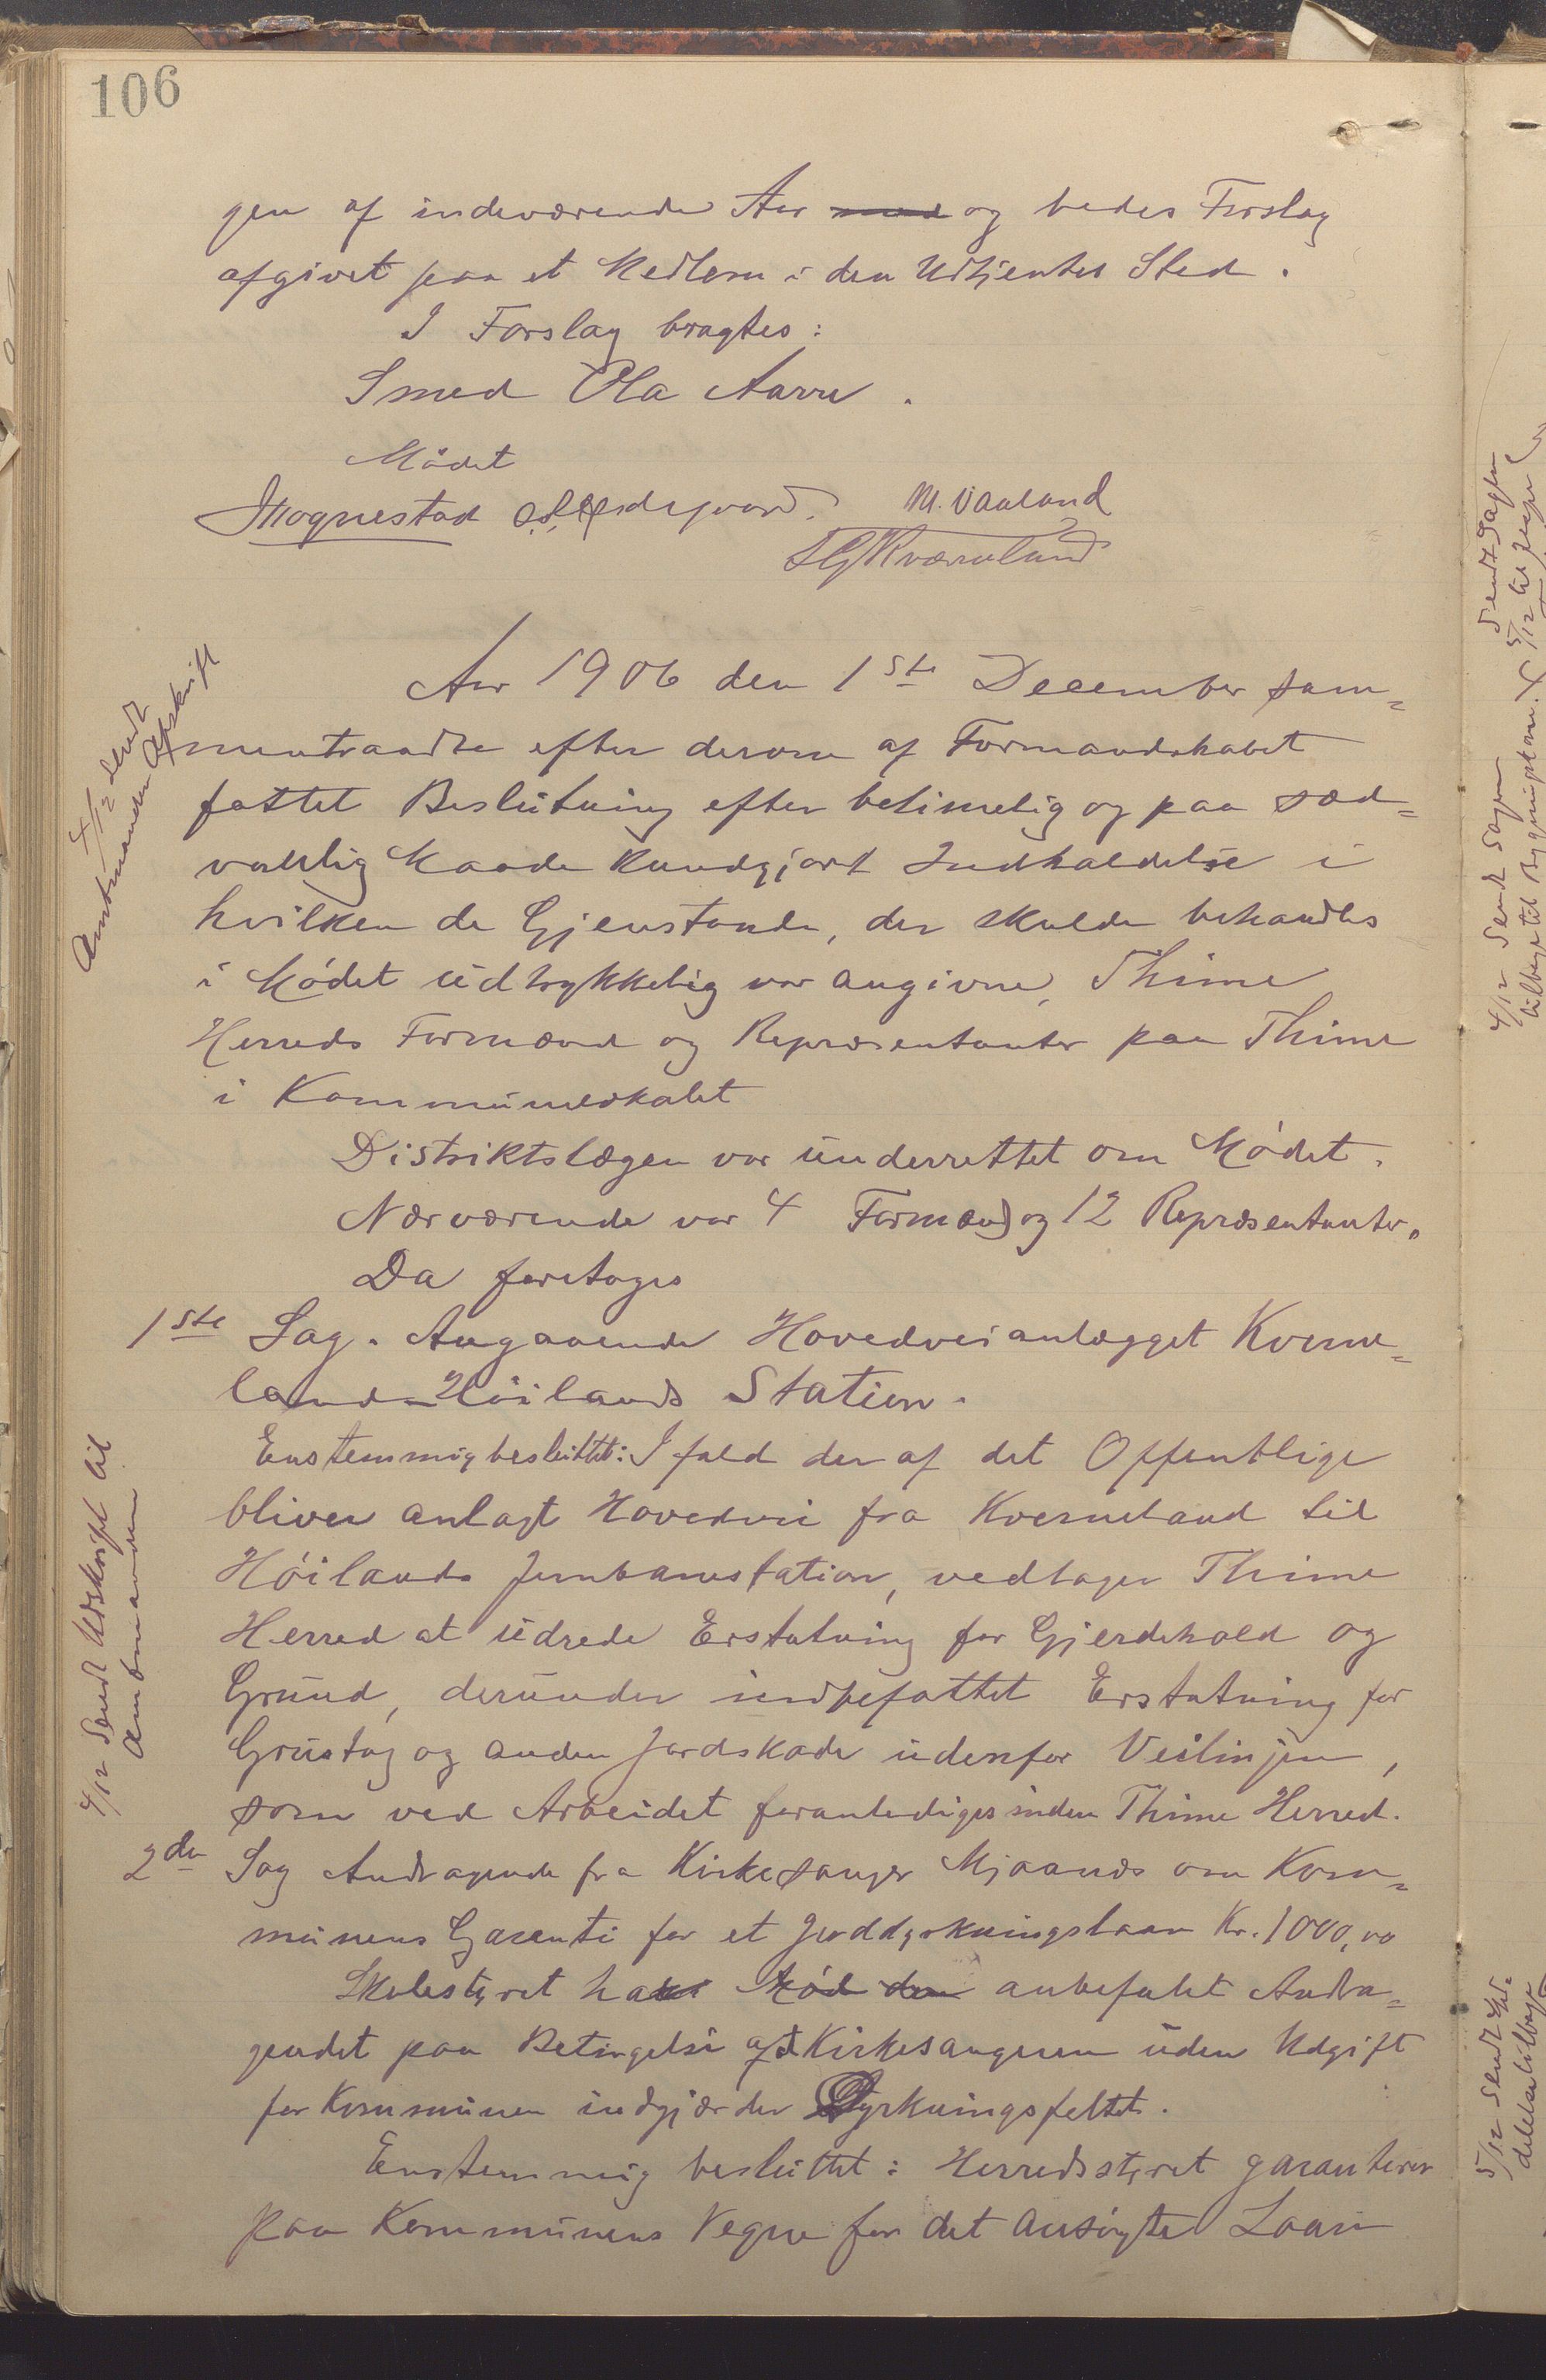 106
gen af indeværende Aar med og bedes Forslag
afgivet paa et Medlem i den Udtjentes Sted.
I Forslag bragtes:
Smed Ola Aarre.
Mødet
M. Vaaland
Kværneland
Aar 1906 den 1ste December sam=
mentraadte efter derom af Formandskabet
fattet Beslutning efter betimelig og paa sæd=
vanlig Maade kundgjort Indkaldelse i
hvilken de Gjenstande, der skulde behandles
i Mødet udtrykkelig var angivne, Thime
Herreds Formænd og Repræsentanter paa Thime
i Kommunelokalet
Distriktslægen var underrettet om Mødet.
Nærværende var 4 Formænd og 12 Repræsentanter.
Da foretoges
4/12 Sendt
Amtmanden Afskrift
1ste Sag. Angaaende Hovedveianlægget Kverne=
land-Høilands Station.
Enstemmig besluttet: I fald der af det Offentlige
bliver anlagt Hovedvei fra Kverneland til
Høilands Jernbanestation, vedtager Thime
Herred at udrede Erstatning for Gjerdehold og
Grund, derunder indbefattet Erstatning for
Grustag og anden Jordskade udenfor Veilinjen,
som ved Arbeidet foranlediges inden Thime Herred.
4/12 Sendt Udskrift til
Amtmanden
2den Sag Andragende fra Kirkesanger Mjaanes om Kom=
munens Garanti for et Jorddyrkningslaan Kr. 1000,00
Skolestyret har Mød den anbefalet Andra=
gendet paa Betingelse af at Kirkesangeren uden Udgift
for Kommunen indgjærder Dyrkningsfeltet.
Enstemmig besluttet: Herredsstyret garanterer
paa Kommunens Vegne for det ansøgte Laan
Sendt Sagen
5/12 til
4/12 Sendt Sagen
tilbage til
5/12 Sendt